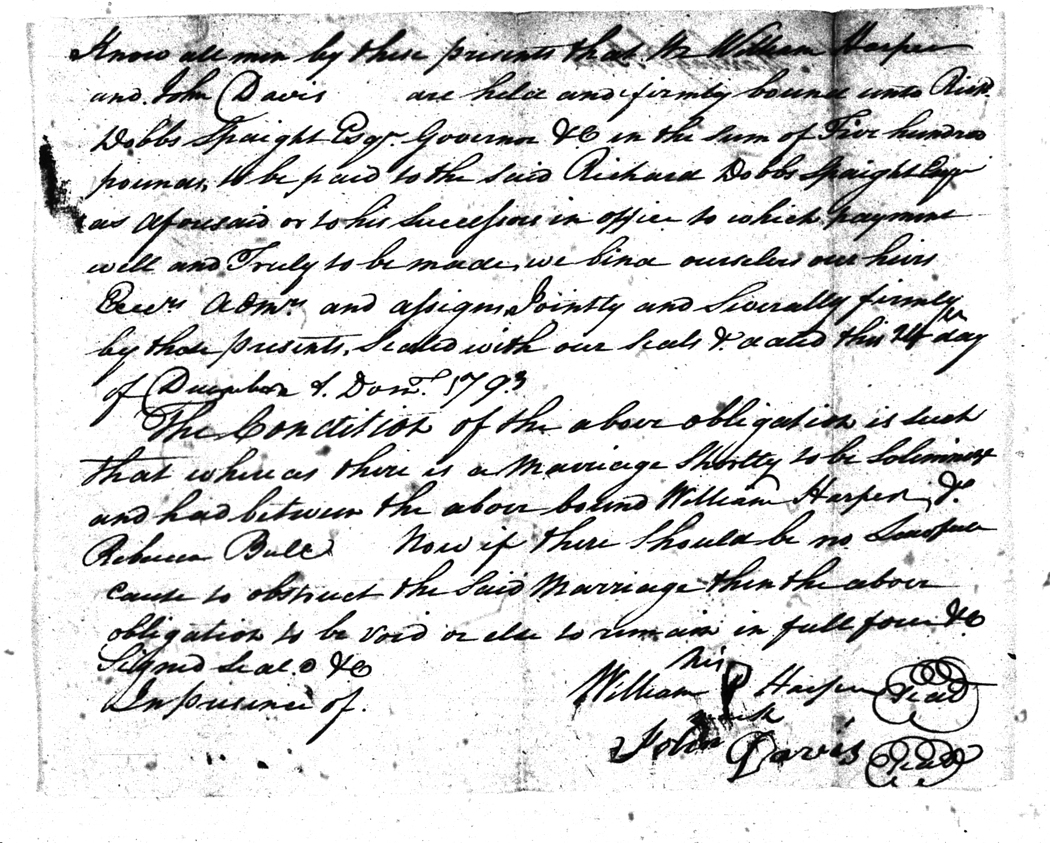 Know all men by these presents that We William Harper
and John Davis are held and firmly bound unto Richd.
Dobbs Spaight Esqr. Governor &C in the sum of Five hundred
pounds, to be paid to the said Richard Dobbs Spaight Esqr
as Aforesaid or to his Successors in office to which payment
well and Truly to be made, we bind ourselves our heirs
Execrs Admrs. and assigns, Jointly and Severally firmly
by these presents, Sealed with our Seals & dated this 24th day
of December A. Domi. 1793
The Condition of the above obligation is such
that where as there is a Marriage Shortly to be Solimnize
and had between the above bound William Harper &
Rebecca Bull Now if there Should be no Lawfull
cause to obstruct the Said Marriage then the above
obligation to be void or else to remain in full force &C
Signed Seal.d &C
In presence of.
his
William P Harper Seal
mark
John Davis Seal